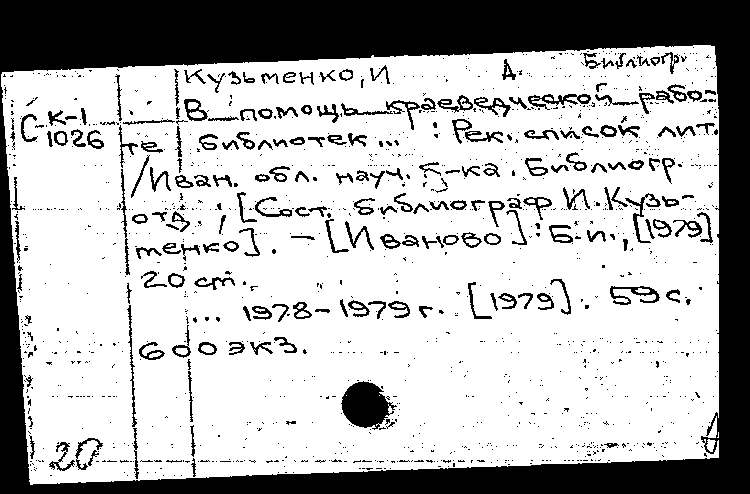 Библиогр.
Кузьменко, И А.
С К-1
1026
В помощь краеведческой рабо-
те библиотек... : Рек. список лит.
/Иван. обл. науч. б-ка. Библиогр.
отд. ; [Сост. библиограф И. Кузь-
менко]. – [Иваново] : Б.и., [1979].
20 см.
... 1978-1979 г. [1979]. 59 с.
600 экз.
20